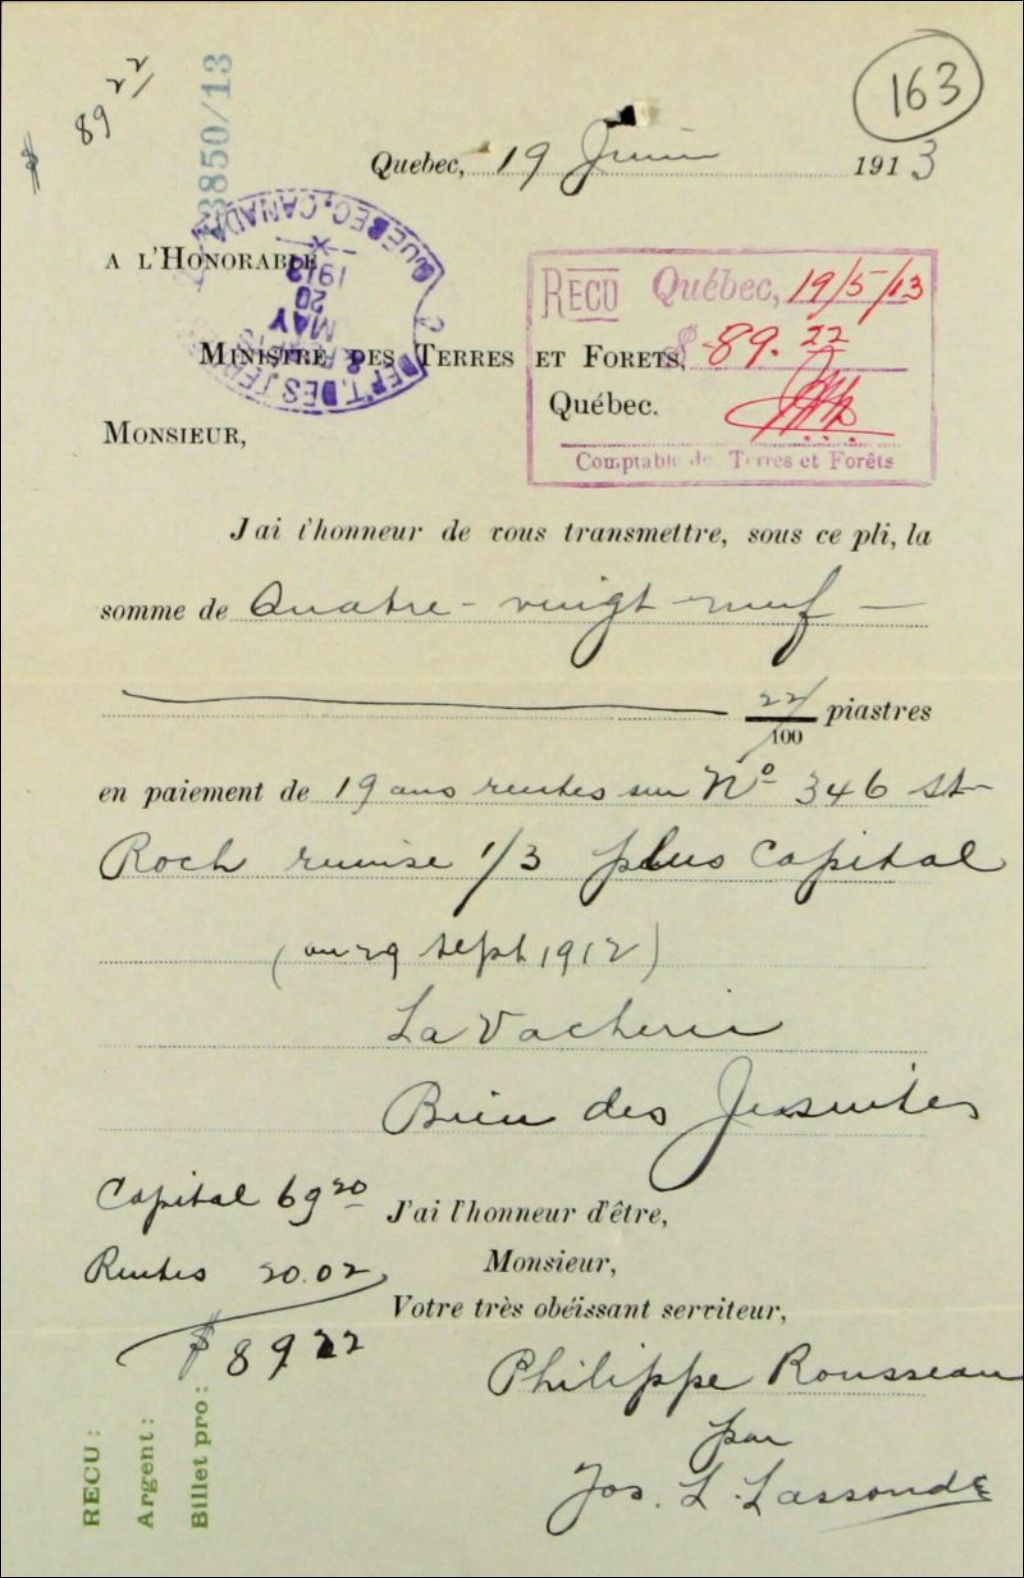 $ 89 22/
3850/13
163
Quebec, 19 Juin 1913
A L'HONORABLE
QUEBEC, CANADA
1913
20
MAY
DEPT. DES TERRES &
RECU Québec, 19/5/13
MINISTRE DES TERRES ET FORETS, $ 89.22
Québec.
MONSIEUR,
Comptable de Terres et Forêts
J'ai l'honneur de vous transmettre, sous ce pli, la
somme de Quatre-vingt-neuf —
22/100 piastres
en paiement de 19 ans rentes sur No 346 St-
Roch remise 1/3 plus Capital
(au 29 sept 1912)
La Vacherie
Bien des Jessuites
Capital 69 20
J'ai l'honneur d'être,
Rentes 20.02
Monsieur,
Votre très obéissant serviteur,
$ 89 22
Philippe Rousseau
par
Jos. L. Lassonde
RECU :
Argent :
Billet pro :